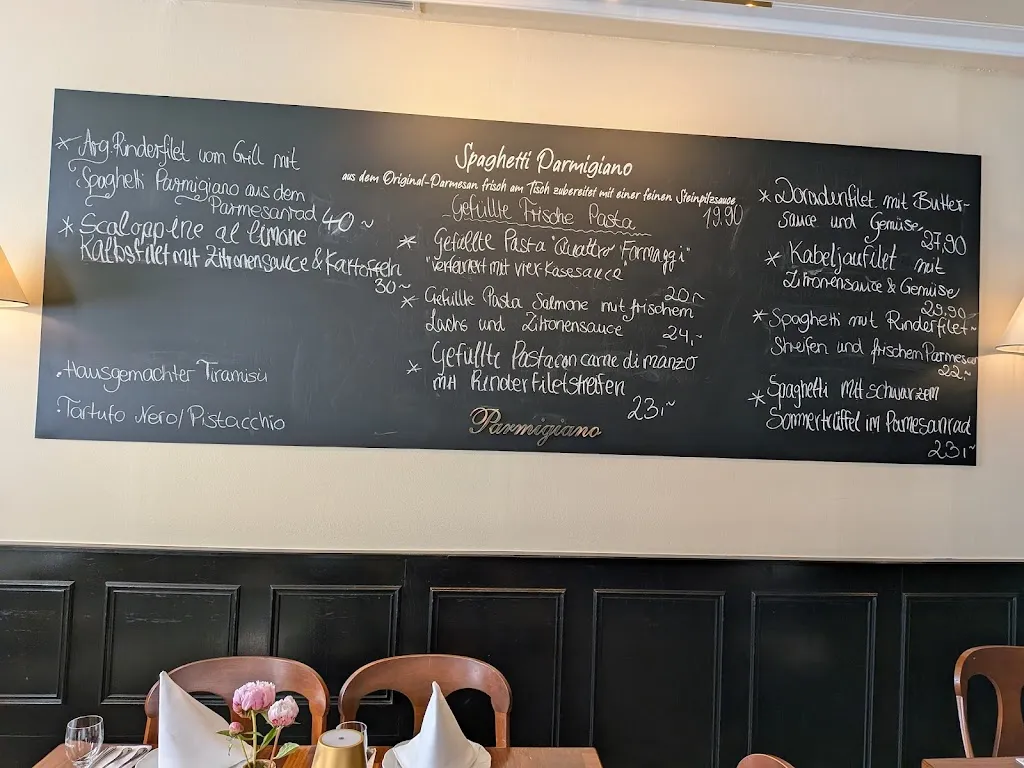 * Arg. Rinderfilet vom Grill mit
Spaghetti Parmigiano aus dem
Parmesanrad 40~
* Scaloppine al limone
Kalbsfilet mit Zitronensauce & Kartoffeln
30~
.Hausgemachter Tiramisu
.Tartufo Nero/Pistacchio
Spaghetti Parmigiano
aus dem Original-Parmesan frisch am Tisch zubereitet mit einer feinen Steinpilzsauce
19.90
Gefüllte Frische Pasta
* Gefüllte Pasta "Quattro Formaggi"
"verfeinert mit vier-Käsesauce"
20,~
* Gefüllte Pasta Salmone mit frischem
Lachs und Zitronensauce 24,~
* Gefüllte Pasta con carne di manzo
mit Rinderfiletstreifen
23,~
Parmigiano
* Doradenfilet mit Butter-
sauce und Gemüse
27,90
* Kabeljaufilet mit
Zitronensauce & Gemüse
29,90
* Spaghetti mit Rinderfilet-
Streifen und frischem Parmesan
22,~
* Spaghetti mit schwarzem
Sommertrüffel im Parmesanrad
23,~